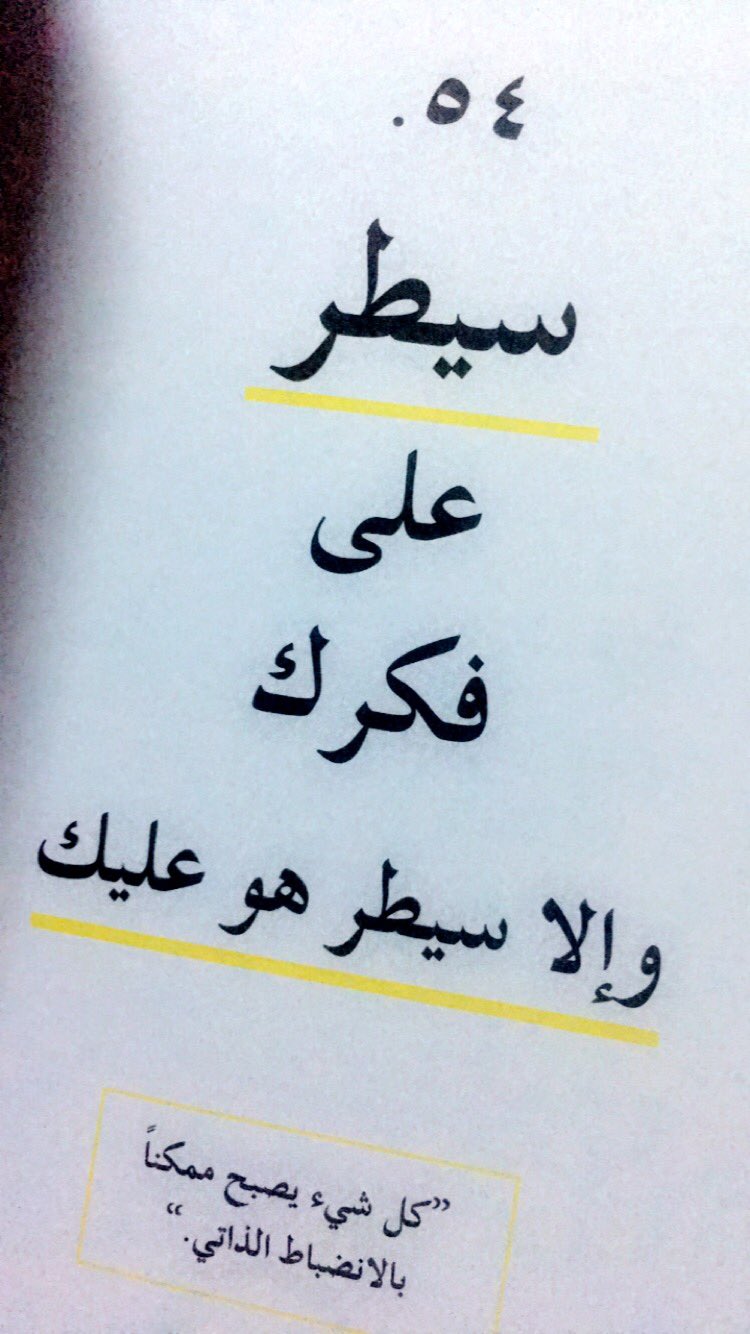 ٥٤.
سيطر
على
فكرك
وإلا سيطر هو عليك
”كل شيء يصبح ممكناً
بالانضباط الذاتي.“